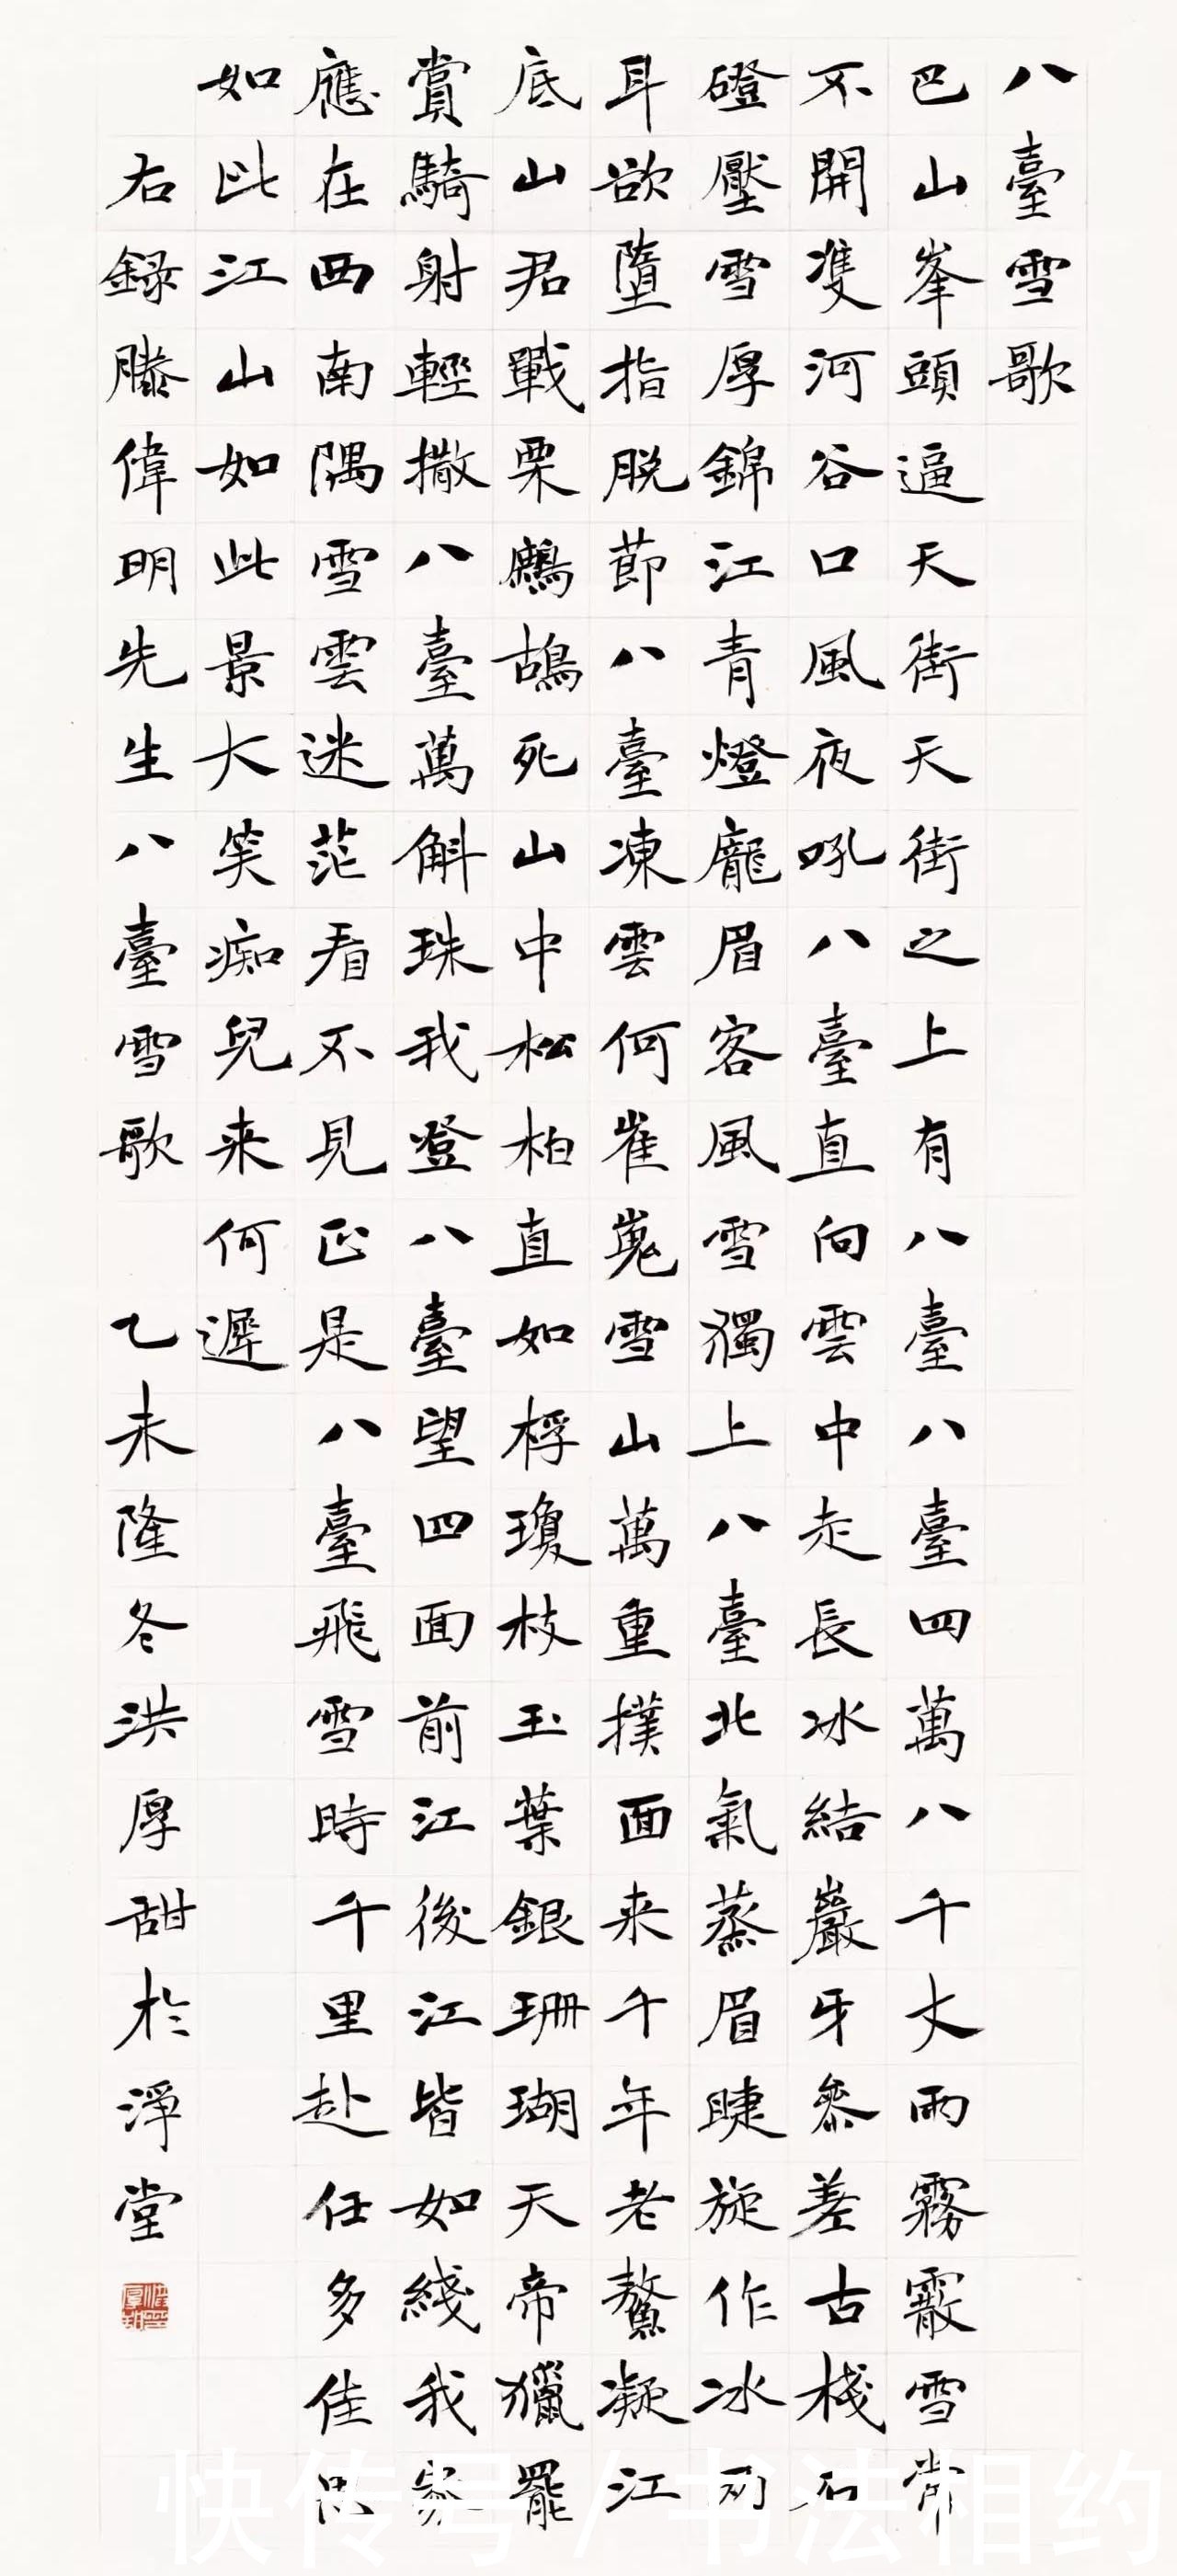 八臺雪歌
巴山峯頭逼天街天街之上有八臺八臺四萬八千丈雨霧霰雪常
不開雙河谷口風夜吼八臺直向雲中走長冰結巖牙參差古棧石
磴壓雪厚錦江青燈龐眉客風雪獨上八臺北氣蒸眉睫旋作冰兩
耳欲墮指脫節八臺凍雲何崔嵬雪山萬重撲面来千年老鰲凝江
底山君戰栗鷓鴣死山中松柏直如桴瓊枝玉葉銀珊瑚天帝獵罷
賞騎射輕撒八臺萬斛珠我登八臺望四面前江後江皆如綫我家
應在西南隅雪雲迷茫看不見正是八臺飛雪時千里赴任多佳思
如此江山如此景大笑痴兒来何遲
右錄滕偉明先生八臺雪歌 乙未隆冬洪厚甜於淨堂
快传号/书法相约